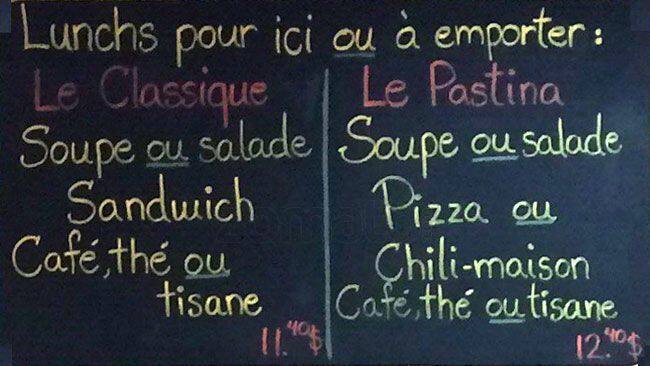 Lunchs pour ici ou à emporter:
Le Classique
Soupe ou salade
Sandwich
Café, thé ou
tisane
11.40$
Le Pastina
Soupe ou salade
Pizza ou
Chili-maison
Café, thé ou tisane
12.40$